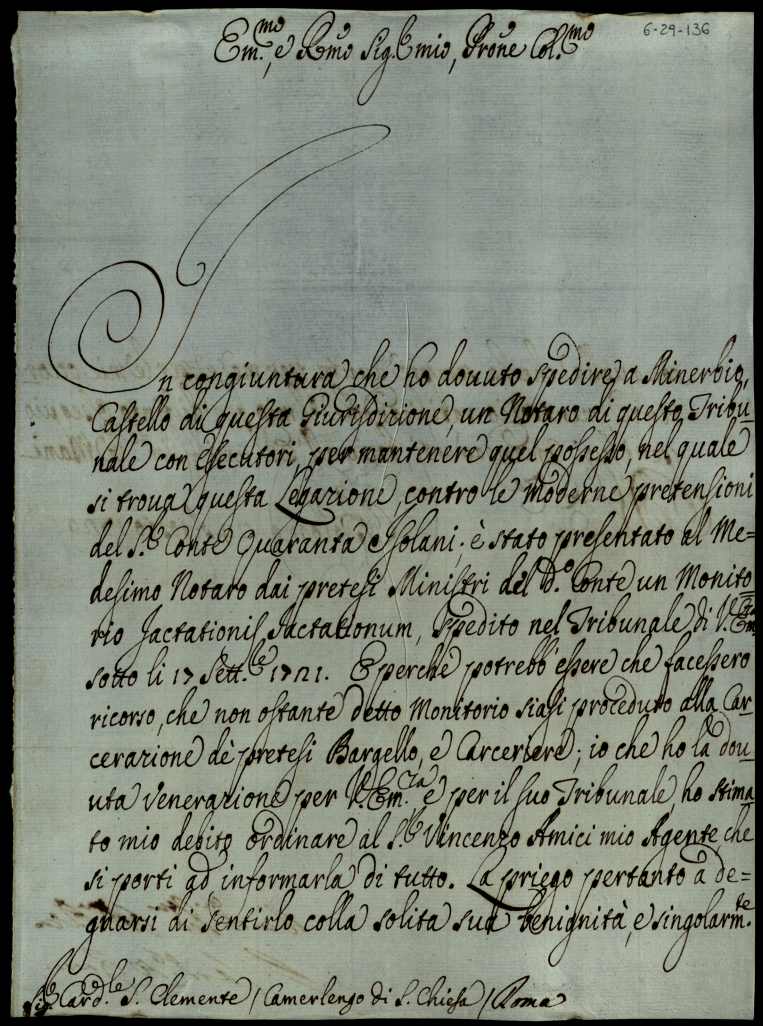 6-29-136
Em.mo, e Rmo Sig.r mio, Prone Col.mo
In congiuntura che ho douuto spedire a Minerbio,
Castello di questa Giurisdizione, un Notaro di questo Tribu-
nale con esecutori per mantenere quel possesso, nel quale
si troua questa Legazione, contro le moderne pretensioni
del S.r Conte Quaranta Isolani; è stato presentato al Me=
desimo Notaro dai pretesi Ministri del d.o Conte un Monito=
rio Jactationis Jactationum, spedito nel Tribunale di V. Em.za
sotto li 17 Sett.le 1721. E perche potrebb'essere che facessero
ricorso, che non ostante detto Monitorio siasi proceduto alla Car-
cerazione de pretesi Bargello, e Carceriere; io che ho la dou-
uta venerazione per V. Em.za e per il suo Tribunale, ho stima-
to mio debito ordinare al S.r Vincenzo Amici mio Agente che
si porti ad informarla di tutto. La priego pertanto a de=
gnarsi di sentirlo colla solita sua benignità, e singolarm.te
Sig.r Card.le S. Clemente / Camerlengo di S. Chiesa / Roma